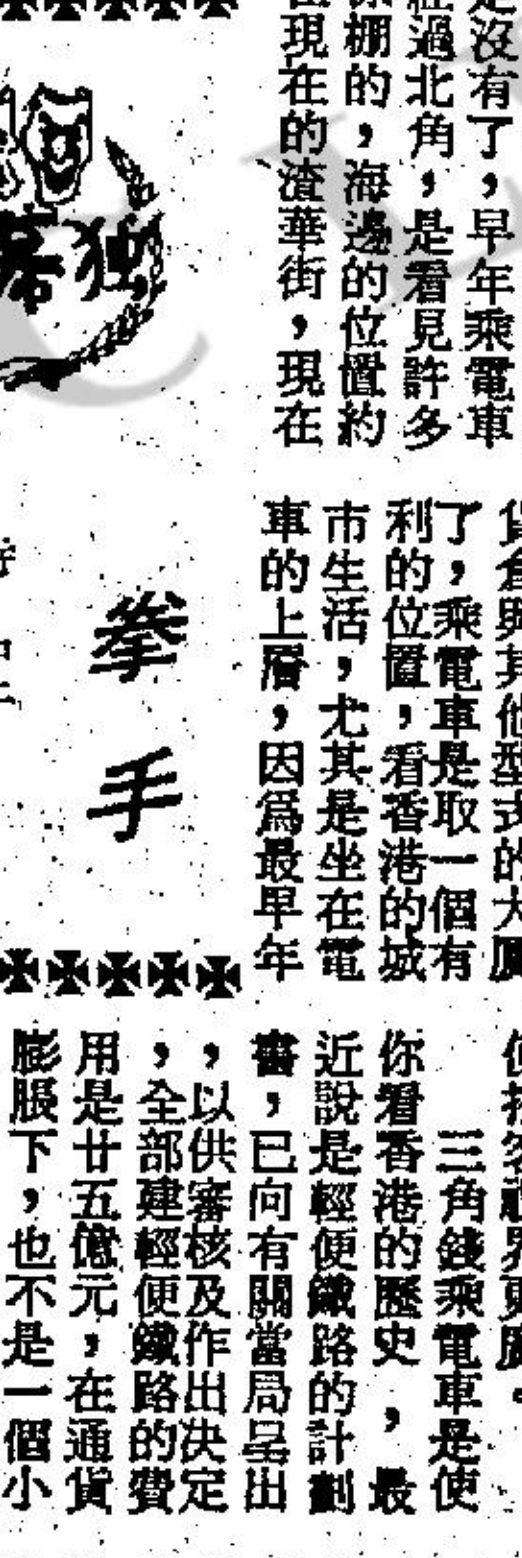 是沒有了，早年乘電車
經過北角，是看見許多
棚的，海邊的位置約
現在的渣華街，現在
貨倉與其他型式的大廈
了，乘電車是取一個有
利的位置，看香港的城
市生活，尤其是坐在電
車的上層，因爲最早年
三角錢乘電車是使
你看香港的歷史，最
近說是輕便鐵路的計劃
書，已向有關當局呈出
，以供審核及作出决定
，全部建輕便鐵路的費
用是廿五億元，在通貨
膨脹下，也不是一個小
独
拳手